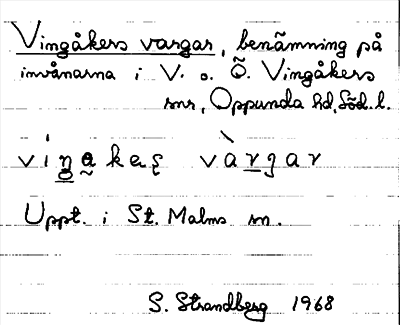 Vingåkers vargar, benämning på
invånarna i V. o. Ö. Vingåkers
snr, Oppunda hd, Söd. l.
Uppt. i St. Malms sn.
S. Strandberg 1968